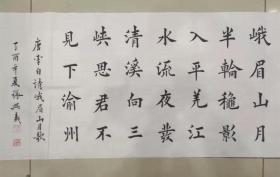 峨眉山月
半輪穐影
入平羌江
水流夜發
清溪向三
峽思君不
見下渝州
唐李白詩峨眉山月歌
丁酉年夏